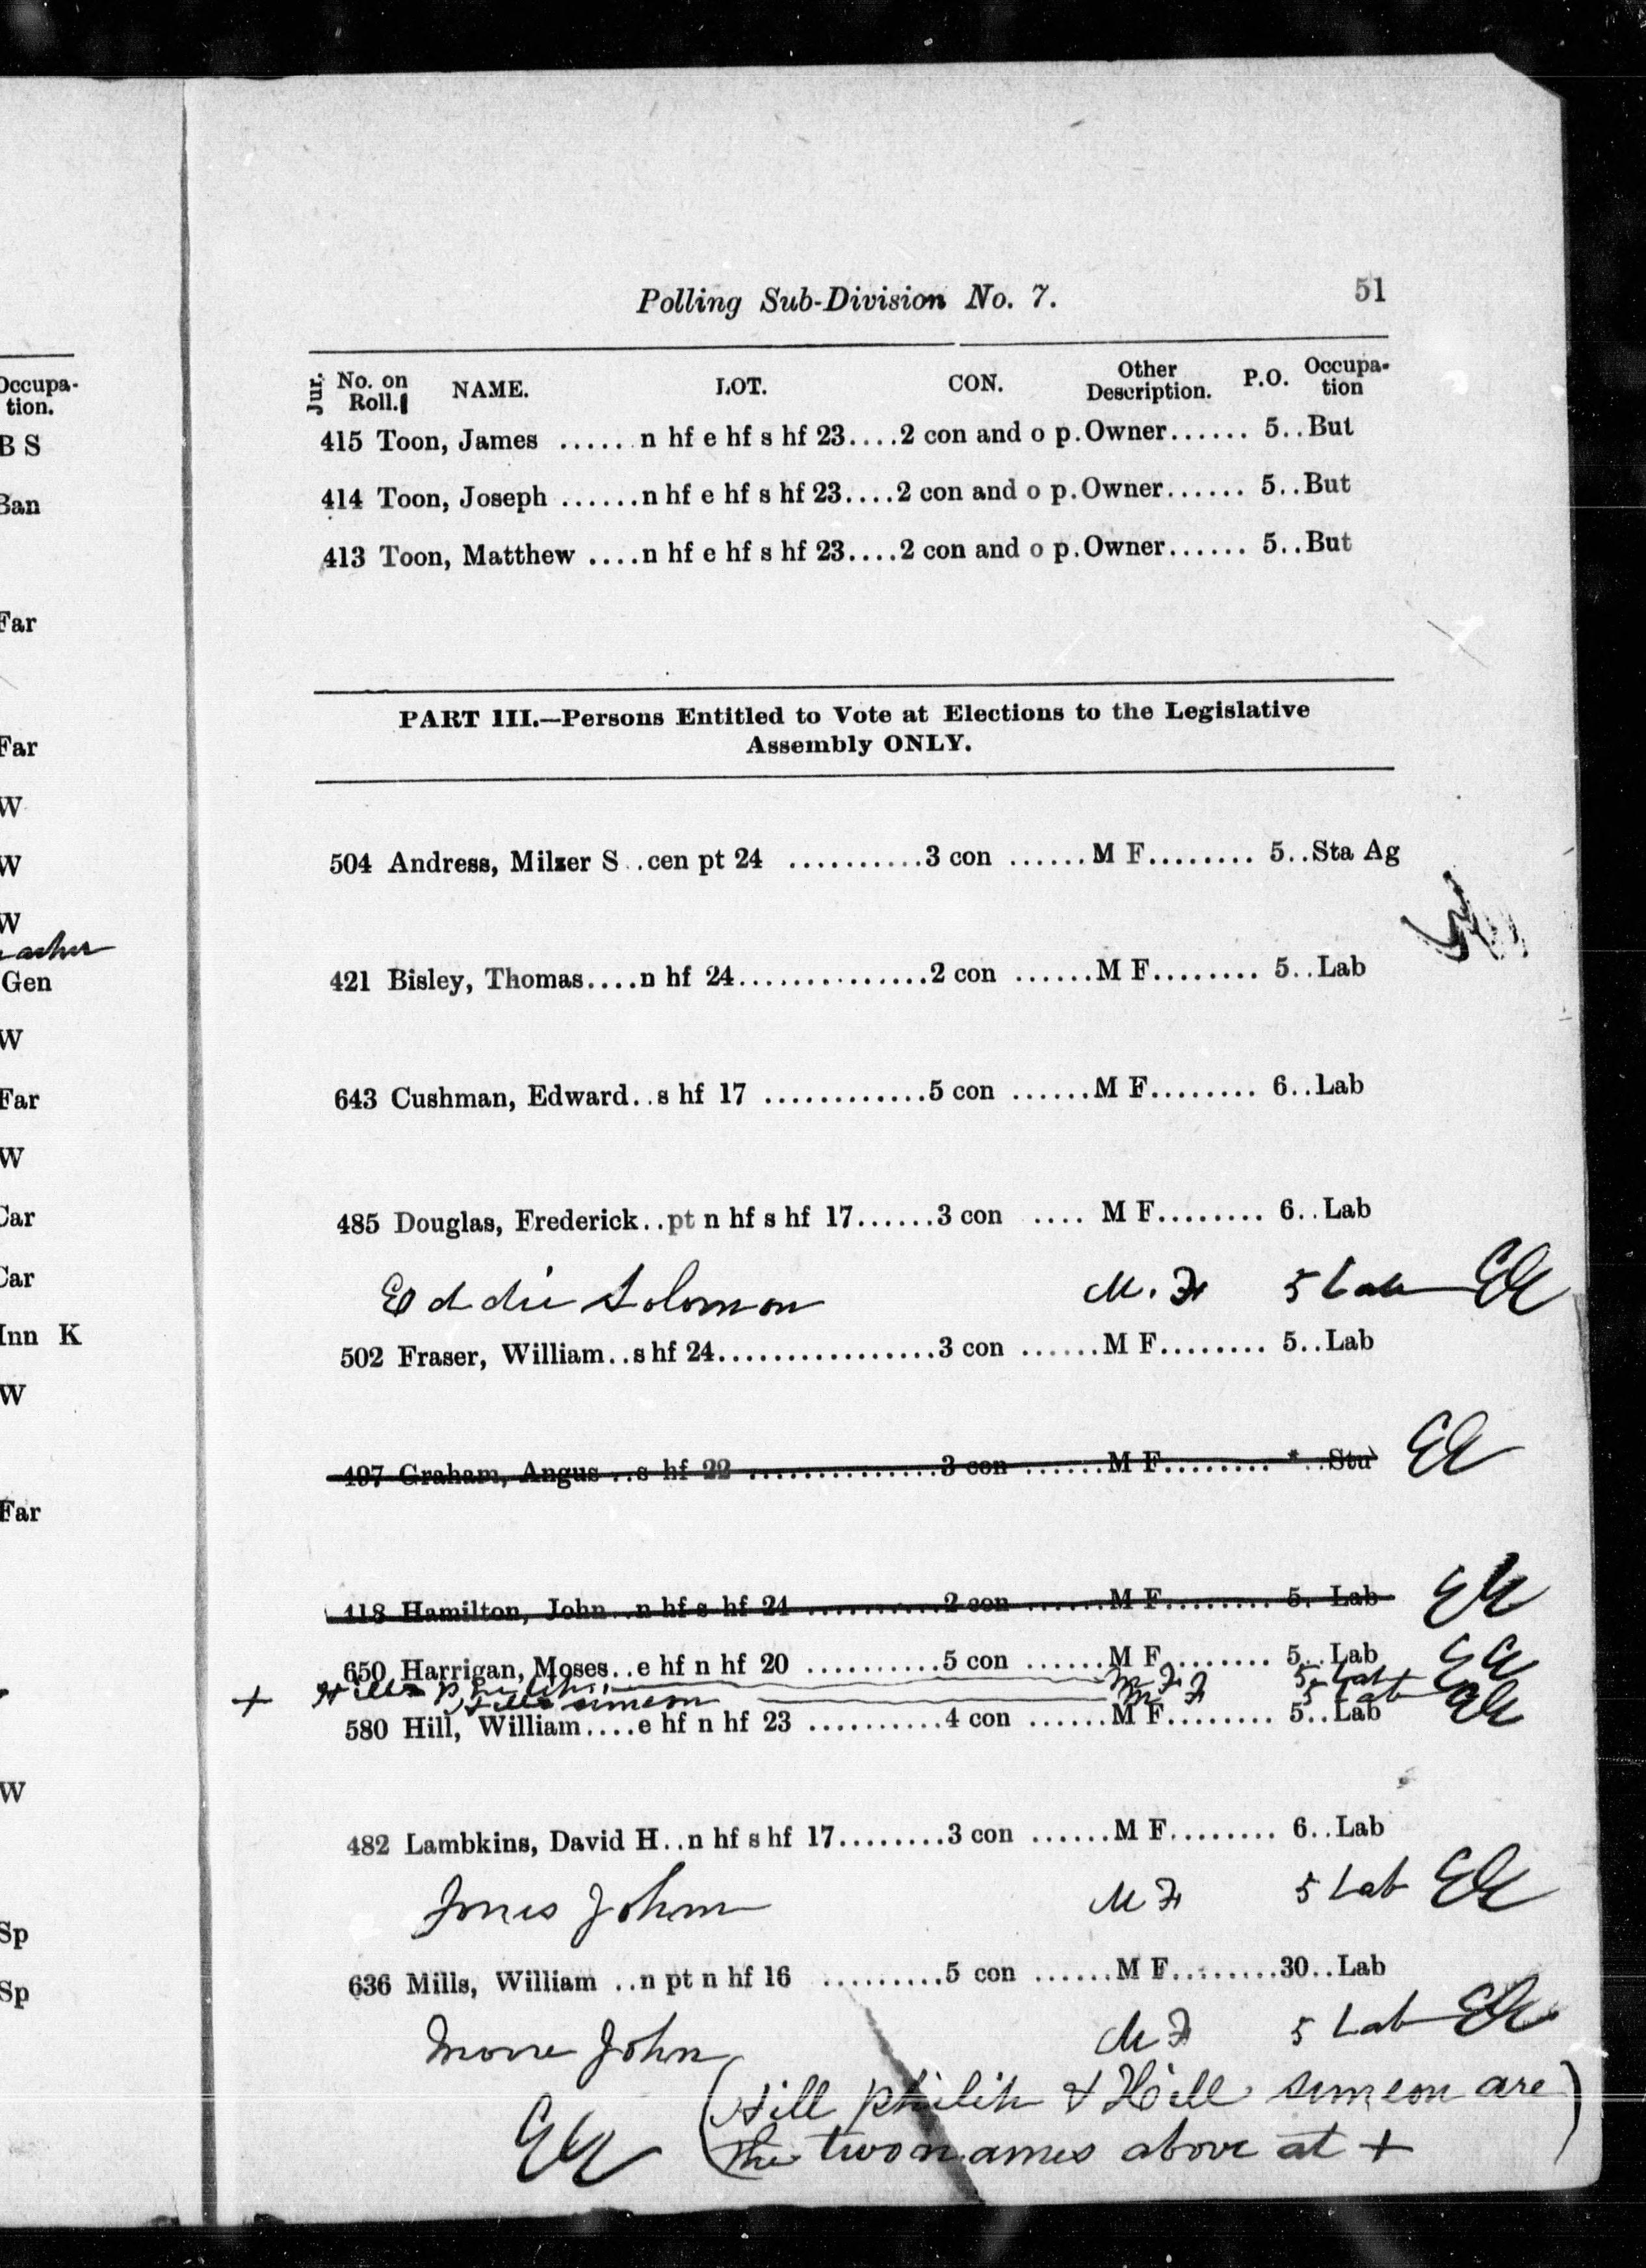 Occupa-
tion.
B S
Ban
Far
Far
W
W
W
Gen
W
Far
W
Car
Car
Inn K
W
Far
W
Sp
Sp
Polling Sub-Division No. 7. 51
Jur. No. on Roll. NAME. LOT. CON. Other Description. P.O. Occupa-tion
415 Toon, James ......n hf e hf s hf 23....2 con and o p.Owner...... 5..But
414 Toon, Joseph ......n hf e hf s hf 23....2 con and o p.Owner...... 5..But
413 Toon, Matthew ....n hf e hf s hf 23....2 con and o p.Owner...... 5..But
PART III.—Persons Entitled to Vote at Elections to the Legislative
Assembly ONLY.
504 Andress, Milzer S..cen pt 24 ..........3 con ......M F........ 5..Sta Ag
421 Bisley, Thomas....n hf 24...............2 con ......M F........ 5..Lab
643 Cushman, Edward..s hf 17 ............5 con ......M F........ 6..Lab
485 Douglas, Frederick..pt n hf s hf 17......3 con .... M F........ 6..Lab
Eddie Solomon M. F 5 Lab
502 Fraser, William..s hf 24.................3 con ......M F........ 5..Lab
497 Graham, Angus ..s hf 22 ...............3 con ......M F......... *..Stu
418 Hamilton, John..n hf s hf 24 ..........2 con ......M F......... 5. Lab
650 Harrigan, Moses..e hf n hf 20 ..........5 con ......M F........ 5..Lab
+ Hill Philip M F 5 Lab
Hill Simeon M F 5 Lab
580 Hill, William....e hf n hf 23 ..........4 con ......M F........ 5..Lab
482 Lambkins, David H..n hf s hf 17........3 con ......M F........ 6..Lab
Jones John M F 5 Lab
636 Mills, William ..n pt n hf 16 .........5 con ......M F........30..Lab
Moore John M F 5 Lab
(Hill philip & Hill simeon are
the two names above at +)